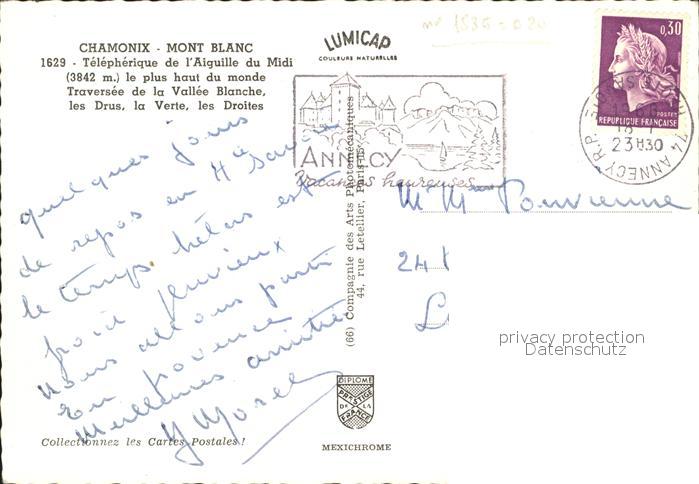 CHAMONIX - MONT BLANC
1629 - Téléphérique de l'Aiguille du Midi
(3842 m.) le plus haut du monde
Traversée de la Vallée Blanche,
les Drus, la Verte, les Droites
LUMICAP
COULEURS NATURELLES
1535
0,30
POSTES
REPUBLIQUE FRANÇAISE
74 ANNECY R.P.
23H30
ANNECY
Vacances heureuses
quelques jours
de repos en Hte Savoie
le temps hélas est
froid pluvieux
Nous allons partir
En Provence
Meilleures amitiés
Y Morel
M Mme
24
L
(66) Compagnie des Arts Photomécaniques
44, rue Letellier, Paris-15
privacy protection
Datenschutz
DIPLOME
PRESTIGE
DE LA
FRANCE
MEXICHROME
Collectionnez les Cartes Postales !